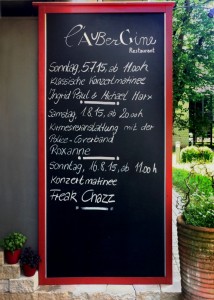 L'AuBerGine
Restaurant
Sonntag, 5.7.15, ab 11.00h
klassische Konzertmatinee
Ingrid Paul & Michael Marx
Samstag, 1.8.15, ab 20.00h
Kirmesveranstaltung mit der
Police-Coverband
Roxanne
Sonntag, 16.8.15, ab 11.00h
Konzertmatinee
Freak Chazz